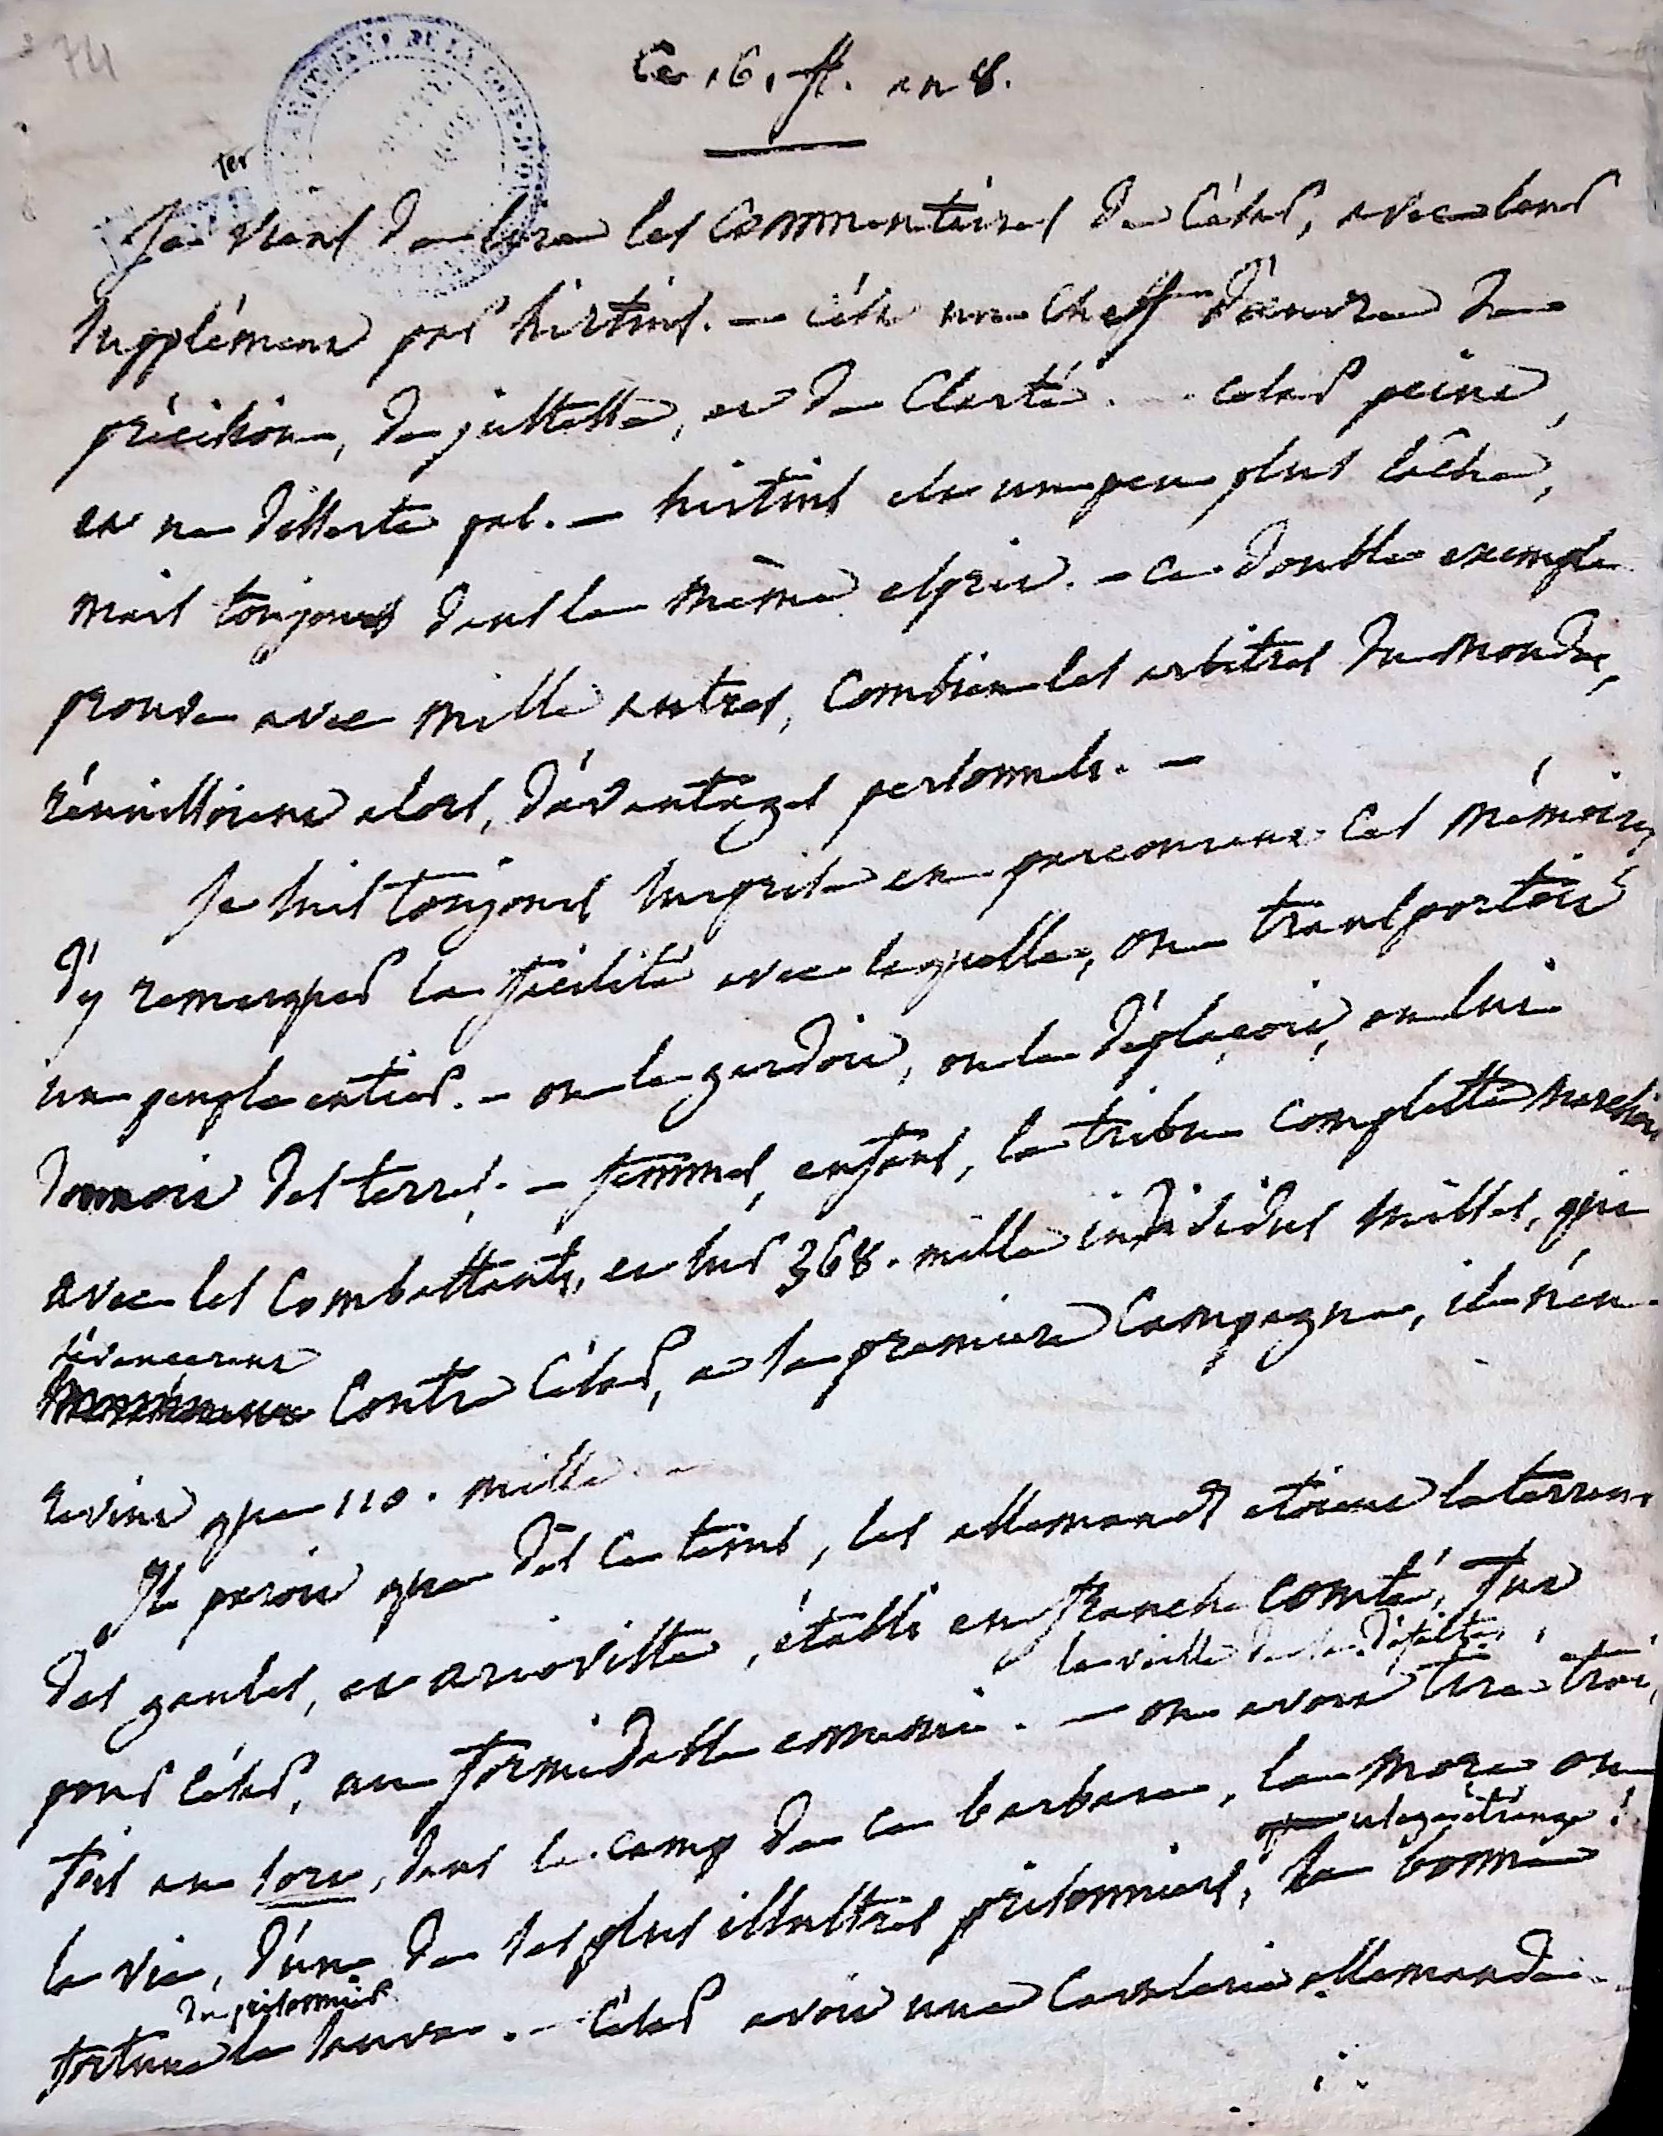 74
Ce 16. fl. an 8.
ter
Je viens de lire les commentaires de César, avec leur
supplément par hirtius. — c'est un chef d'œuvre de
précision, de justesse, et de clarté. — César peint,
et ne disserte pas. — hirtius est un peu plus lâche,
mais toujours dans le même esprit. — ce double exemple
prouve avec mille autres, combien les arbitres du monde,
réunissoient alors, d'avantages personnels. —
Je suis toujours surprise en parcourant ces mémoires
d'y remarquer la facilité avec laquelle, on transportoit
un peuple entier. — on le gardoit, on le déplaçoit, on lui
donnoit des terres. — femmes, enfans, la tribu complette marchoit
avec les combattants, et sur 368. mille individus suisses, qui
s'avancerent
contre César, a la premiere campagne, il n'en
revint que 110. mille. —
Il paroit que dès ce tems, les allemands etoient la terreur
des gaules, et arioviste, établi en franche comté, fut
la veille de sa défaite,
pour César, un formidable ennemi. — on avoit tiré trois
fois au sort, dans le camp de ce barbare, la mort ou
usage étrange!
la vie, d'un de ses plus illustres prisonniers, la bonne
du prisonnier
fortune le sauva. — César avoit une cavalerie allemande